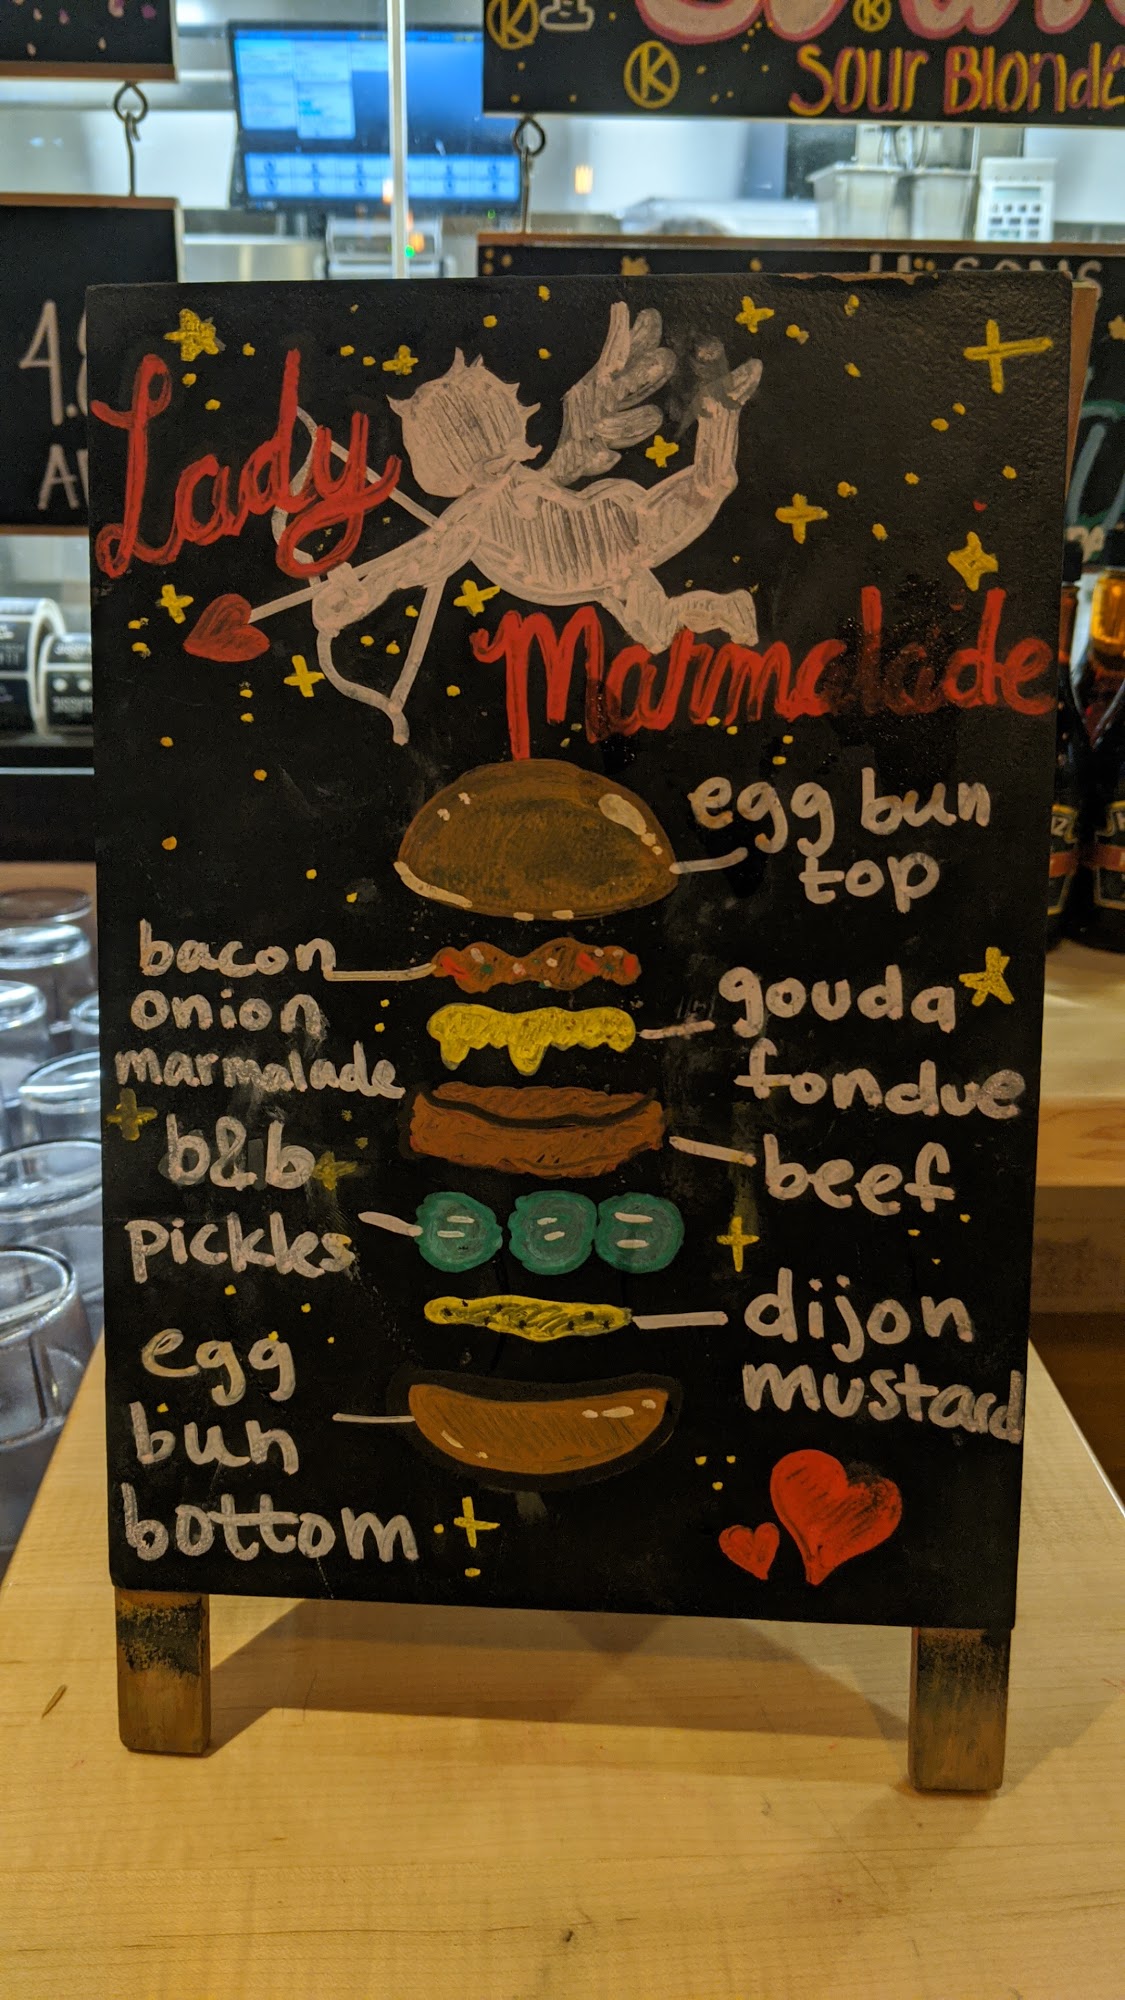 K
K
K
Sour Blonde
Lady
Marmalade
egg bun
top
bacon
onion
marmalade
gouda
fondue
b&b
pickles
beef
dijon
mustard
egg
bun
bottom